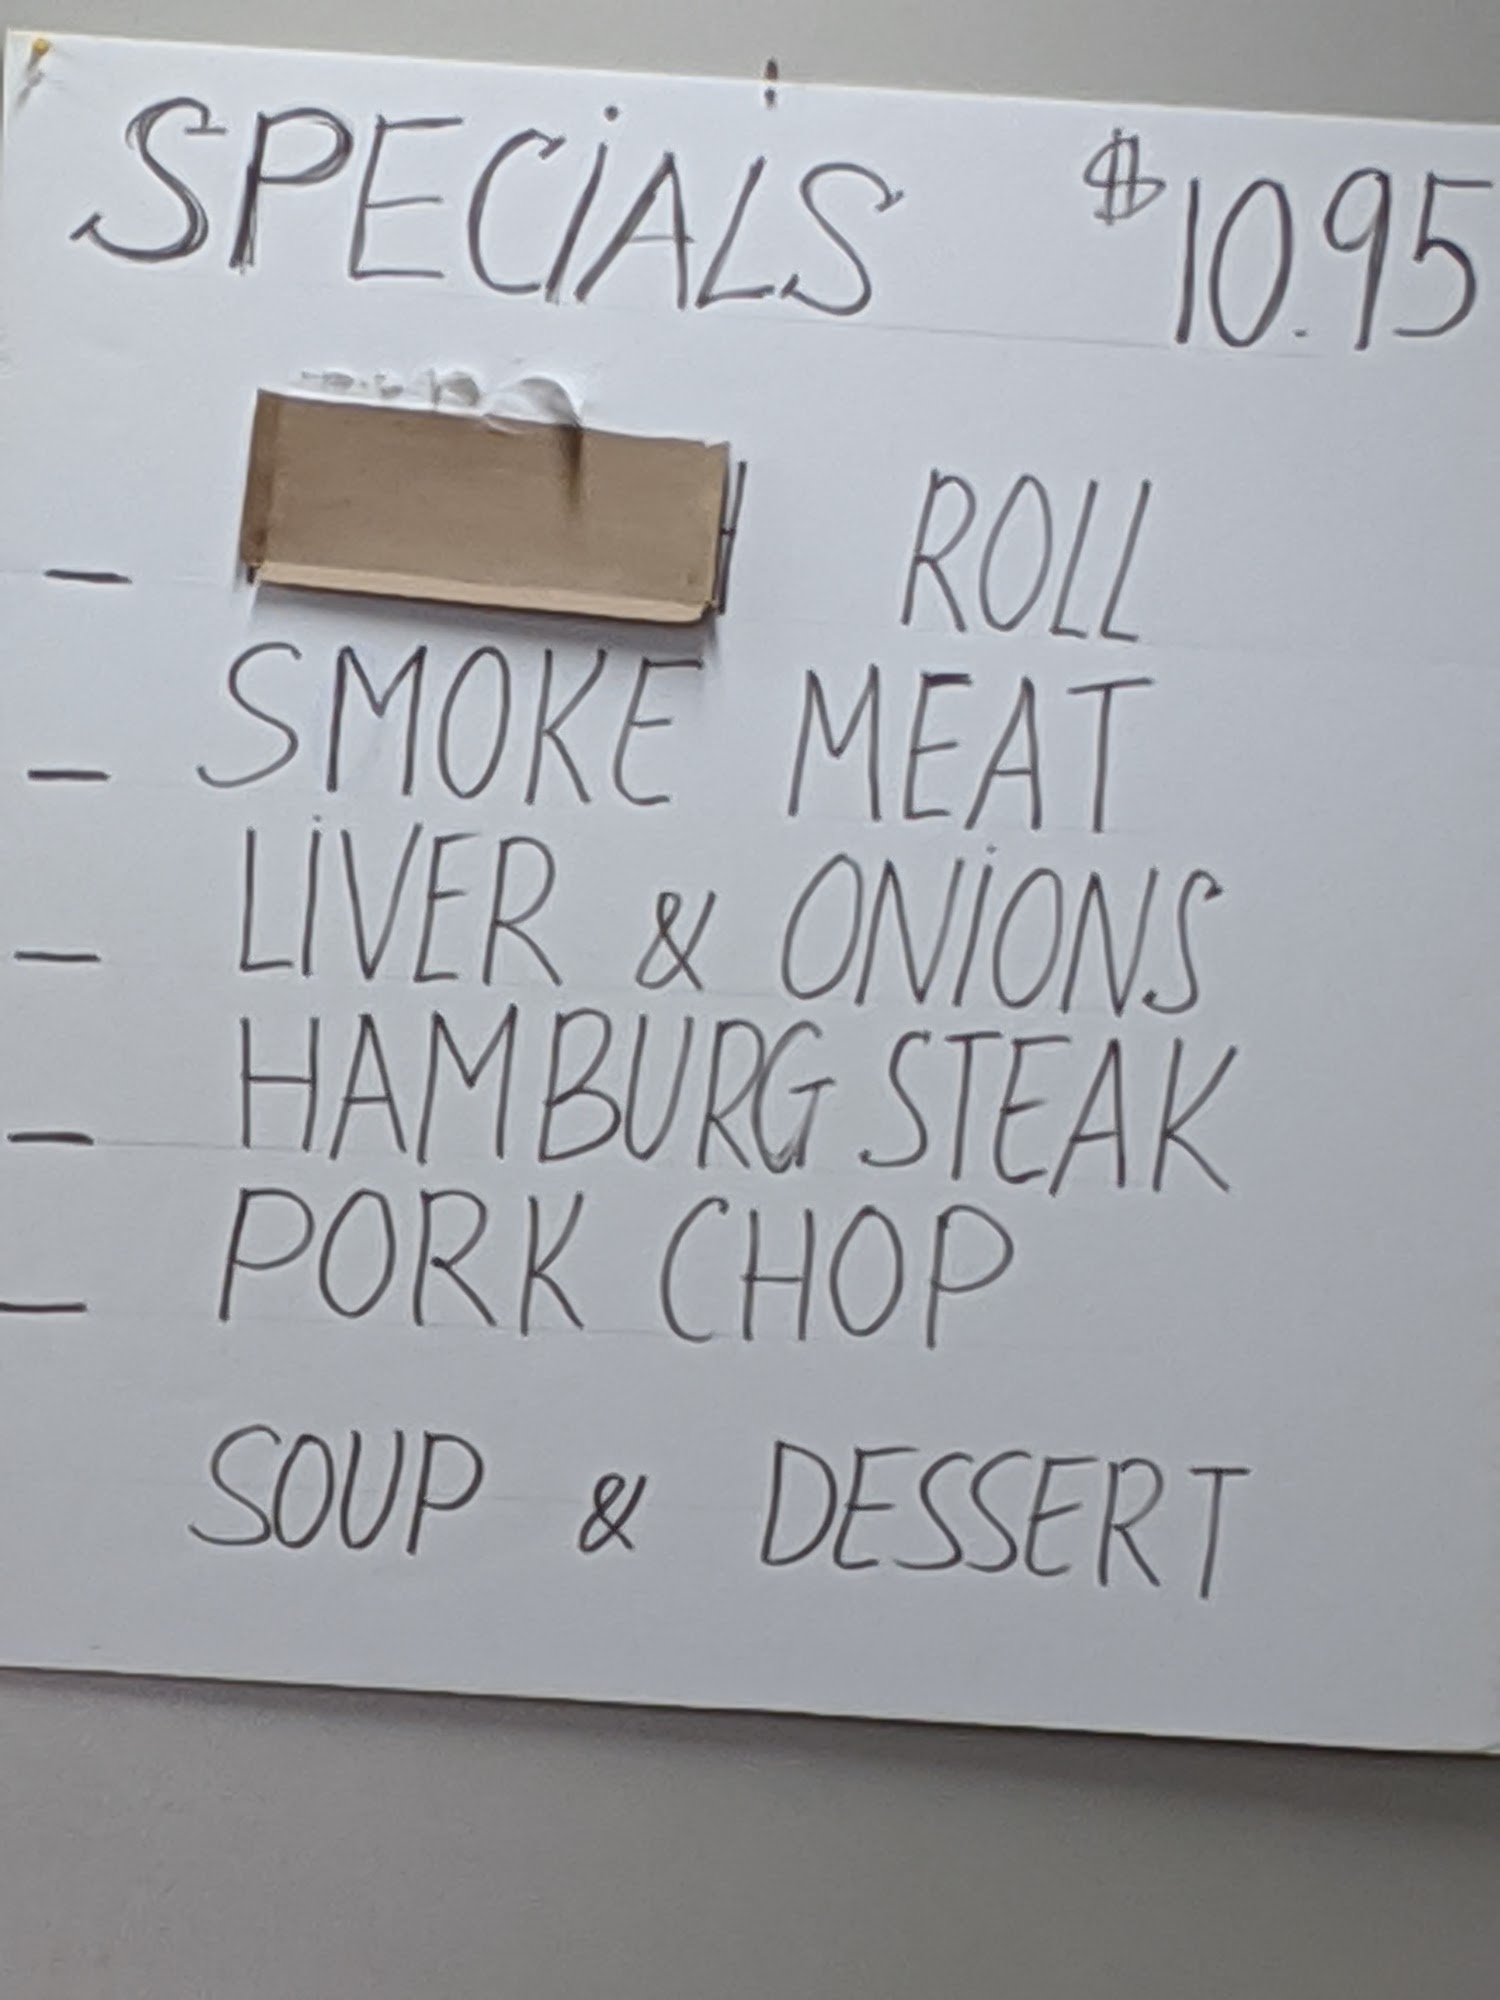 SPECIALS $10.95
- ROLL
- SMOKE MEAT
- LIVER & ONIONS
- HAMBURG STEAK
- PORK CHOP
SOUP & DESSERT